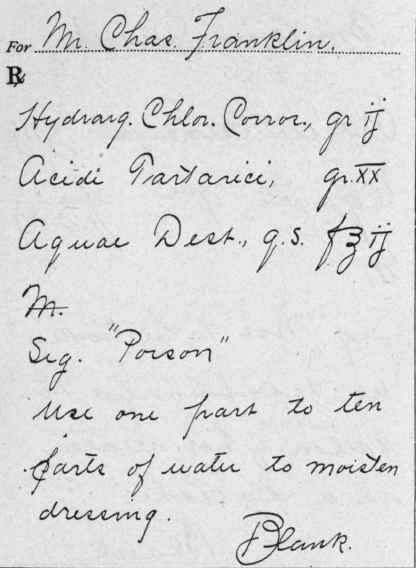 For Mr. Chas. Franklin.
℞
Hydrarg. Chlor. Corros., gr ij
Acidi Tartarici, gr. xx
Aquae Dest., q.s. f℥ ij
M.
Sig. "Poison"
Use one part to ten
parts of water to moisten
dressing.
Blank.